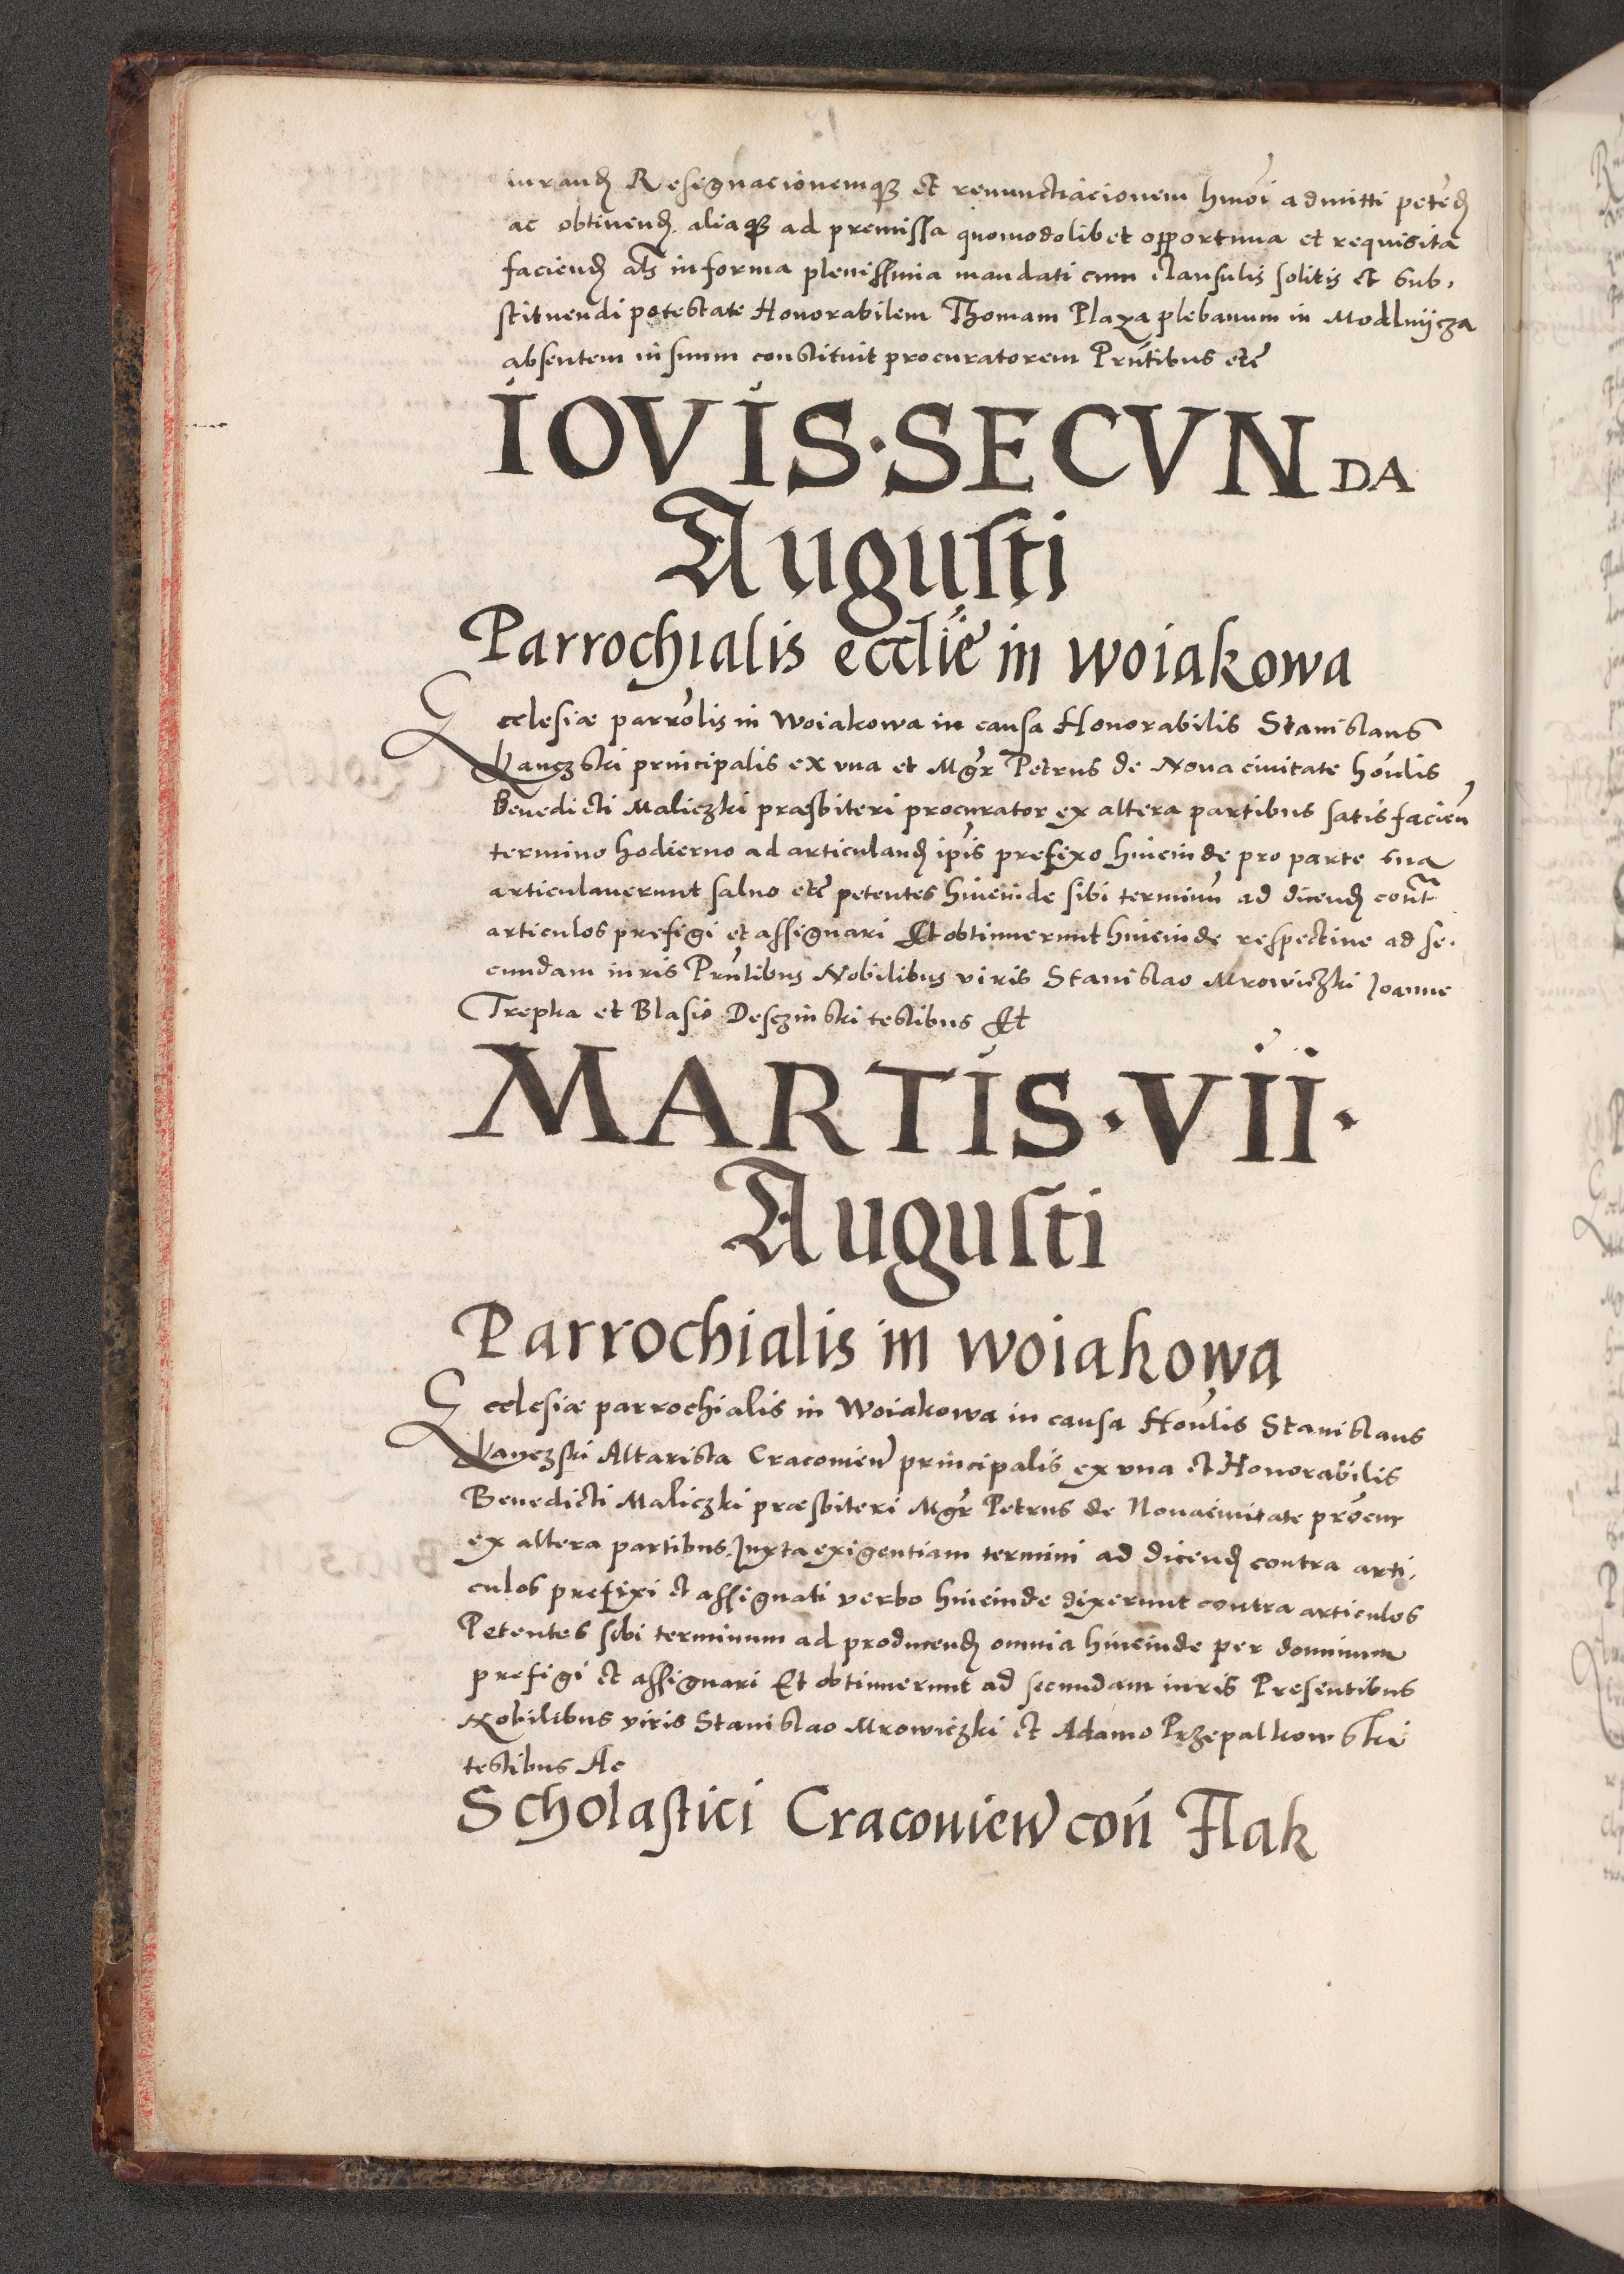 iurand Resignacionemq3 et renunctiacionem hmoi admitti petend
ac obtinend. aliaq3 ad premissa quomodolibet opportuna et requisita
faciend als in forma plenissima mandati cum clausulis solitis et sub,
stituendi potestate Honorabilem Thomam Plaza plebanum in Modlnycza
absentem in suum constituit procuratorem Prntibus etc
IOVIS·SECVNDA
Augusti
Parrochialis ecclie in Woiakowa
Ecclesiæ parrolis in Woiakowa in causa Honorabilis Stanislaus
Vanczski principalis ex vna et Mgr Petrus de Noua ciuitate honlis
Benedicti Maliczki præsbiteri procurator ex altera partibus satisfacien
termino hodierno ad articuland ipis prefixo hincinde pro parte sua
articulauerunt saluo etc petentes hincinde sibi terminu ad dicend cont
articulos prefigi et assignari Et obtinuerunt hincinde respectiue ad se,
cundam iuris Prntibus Nobilibus viris Stanislao Mrowiczki Joanne
Trepka et Blasio Desczinski testibus Et
MARTIS·VII·
Augusti
Parrochialis in Woiakowa
Ecclesiæ parrochialis in Woiakowa in causa Honlis Stanislaus
Vanczski Altarista Cracovien principalis ex vna et Honorabilis
Benedicti Maliczki præsbiteri Mgr Petrus de Nouaciuitate procur
ex altera partibus. Juxta exigentiam termini ad dicend contra arti,
culos prefixi et assignati verbo hincinde dixerunt contra articulos
Petentes sibi terminum ad producend omnia hincinde per dominum
prefigi et assignari Et obtinuerunt ad secundam iuris Presentibus
Nobilibus viris Stanislao Mrowiczki et Adamo Przepalkowski
testibus Ac
Scholastici Cracovien con Flak